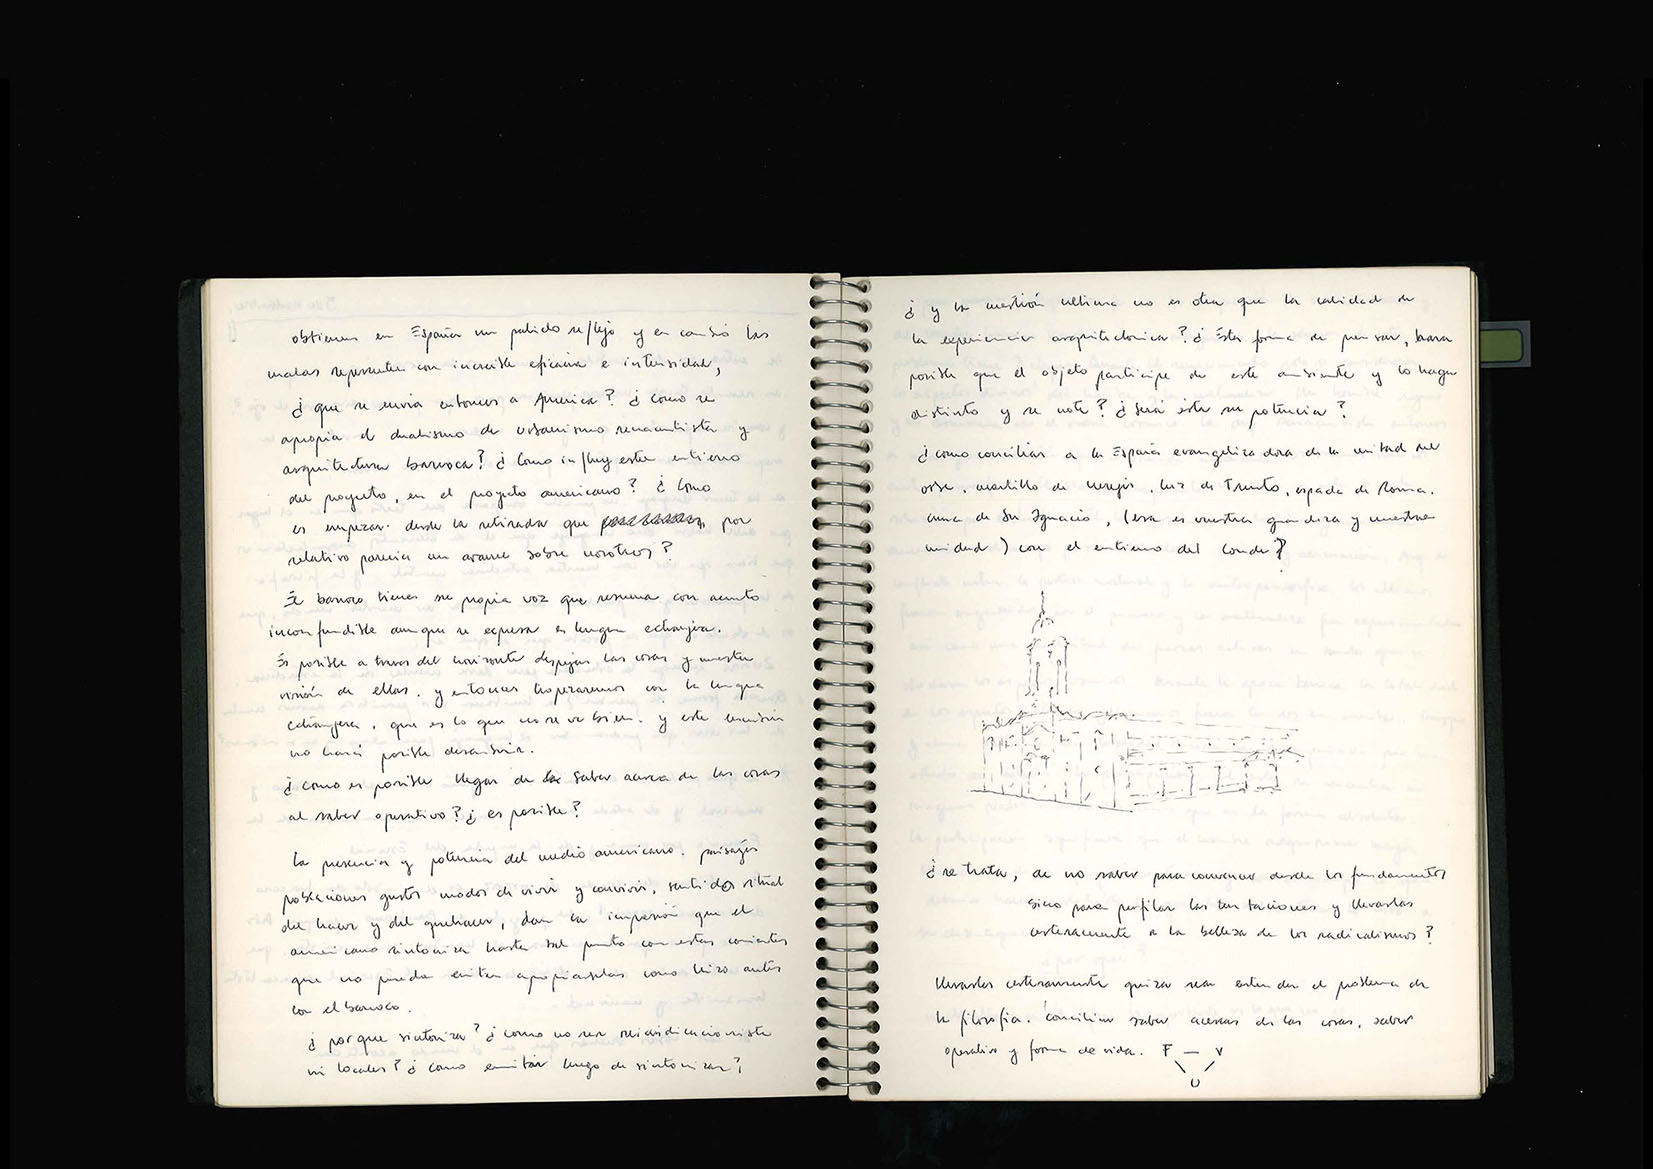 obtienen en España un palido reflejo y en cambio las
malas repercuten con increible eficacia e intensidad,
¿ que se envia entonces a America? ¿ como se
apropia el dualismo de urbanismo renacentista y
arquitectura barroca? ¿ Como influye este entierro
del proyecto, en el proyecto americano? ¿ Como
es empezar desde la retirada que por
relativo parecia un avance sobre nosotros?
El barroco tiene su propia voz que resuena con acento
inconfundible aunque se expresa en lengua extranjera.
Es posible a traves del horizonte despejar las cosas y nuestra
visión de ellas. y entonces tropezaremos con la lengua
extranjera, que es lo que no se ve bien. y este
no hará posible descubrir.
¿ como es posible llegar de saber acerca de las cosas
al saber operativo? ¿ es posible?
La presencia y potencia del medio americano. paisajes
poblaciones gustos modos de vivir y convivir, sentidos ritual
del hacer y del quehacer, dan la impresión que el
americano sintoniza hasta tal punto con estas corrientes
que no pueda evitar apropiarselas como hizo antes
con el barroco.
¿ porque sintoniza? ¿ como no ser reivindicacionista
ni locales? ¿ como emitir luego de sintonizar?
¿ y la cuestión ultima no es otra que la calidad de
la experiencia arquitectonica? ¿ Esta forma de pensar, hara
posible que el objeto participe de este ambiente y lo haga
distinto y se note? ¿ Será esta su potencia?
¿ como conciliar a la España evangelizadora de la mitad del
orbe, martillo de herejes, luz de Trento, espada de Roma,
cuna de Sn Ignacio, (esa es nuestra grandeza y nuestra
unidad) con el entierro del Conde?
¿ se trata, de no saber para convencer desde los fundamentos
sino para perfilar las tentaciones y llevarlas
certeramente a la belleza de los radicalismos?
llevarlas certeramente quiza sea entender el problema de
la filosofia. Conciliar saber acerca de las cosas, saber
operativo y forma de vida. F — V
U